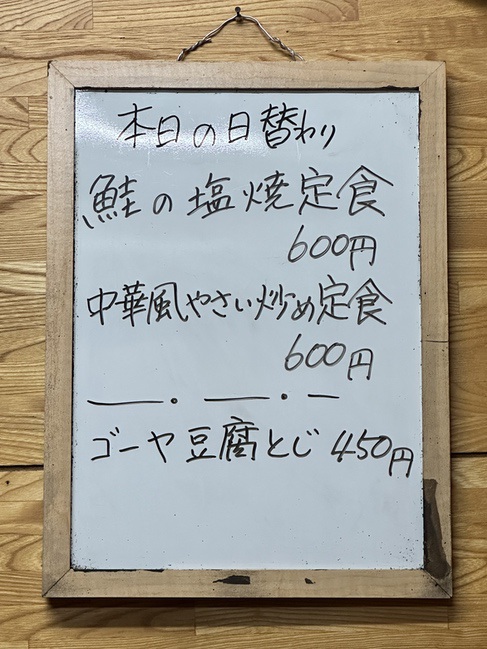 本日の日替わり
鮭の塩焼定食
600円
中華風やさい炒め定食
600円
ゴーヤ豆腐とじ 450円